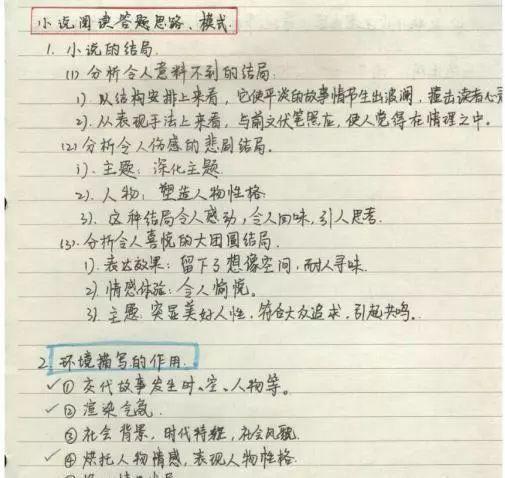 小说阅读答题思路、模式.
1. 小说的结局.
(1) 分析令人意料不到的结局:
1). 从结构安排上来看，它使平淡的故事情节生出波澜，撞击读者心灵
2). 从表现手法上来看，与前文伏笔照应，使人觉得在情理之中。
(2) 分析令人伤感的悲剧结局。
1). 主题：深化主题.
2). 人物：塑造人物性格.
3). 这种结局令人感动，令人回味，引人思考.
(3). 分析令人喜悦的大团圆结局.
1). 表达效果：留下了想像空间，耐人寻味.
2). 情感体验：令人愉悦。
3). 主题：突显美好人性，符合大众追求，引起共鸣。
2. 环境描写的作用.
✓① 交代故事发生时、空、人物等。
✓② 渲染气氛.
③ 社会背景，时代特征，社会风貌.
✓④ 烘托人物情感，表现人物性格.